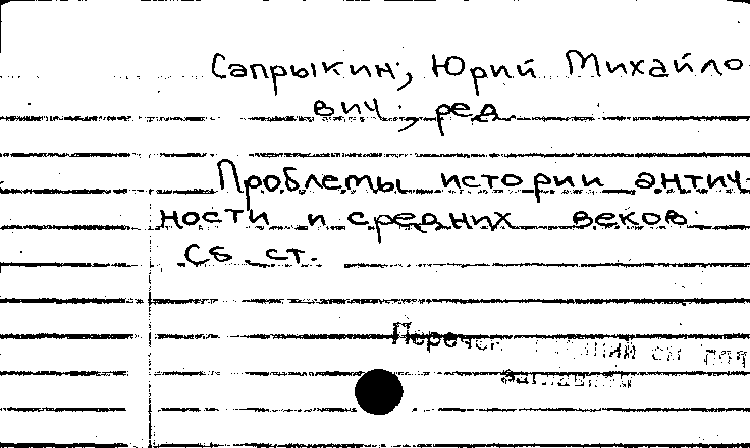 Сапрыкин, Юрий Михайло-
вич, ред.
Проблемы истории антич-
ности и средних веков.
Сб. ст.
Перечень изданий см. под
заглавием